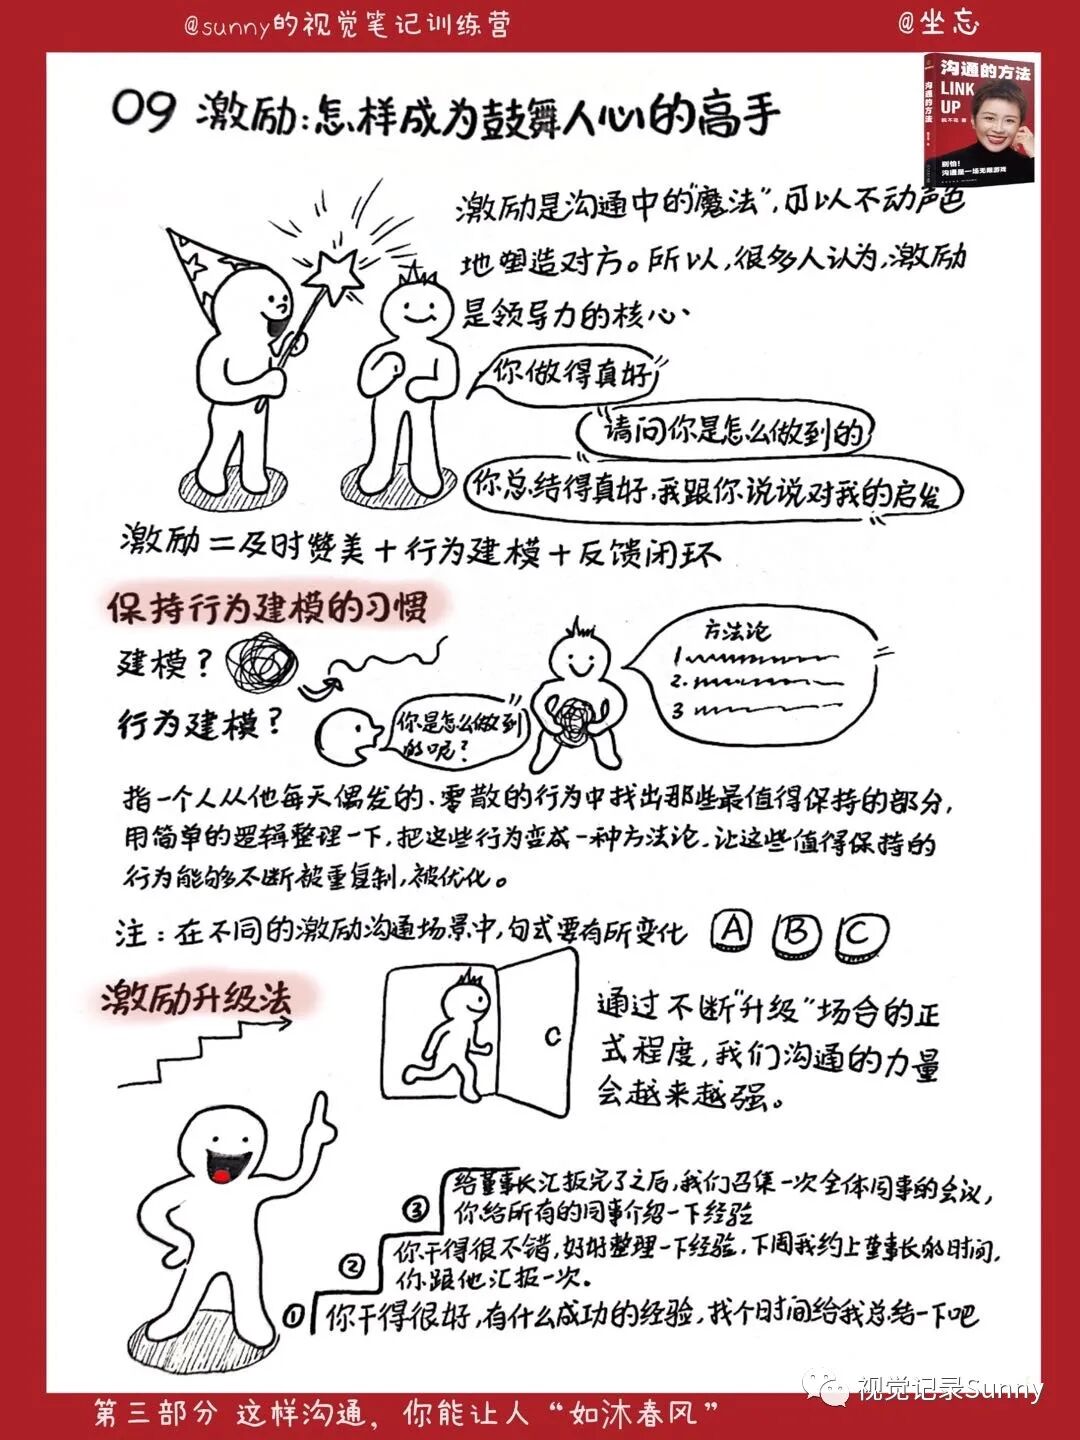 @sunny的视觉笔记训练营
@坐忘
沟通的方法
LINK
UP
沟通的方法
脱不花 著
别怕!
沟通是一场无限游戏
09 激励:怎样成为鼓舞人心的高手
激励是沟通中的"魔法",可以不动声色
地塑造对方。所以,很多人认为,激励
是领导力的核心、
你做得真好
请问你是怎么做到的
你总结得真好,我跟你说说对我的启发
激励=及时赞美+行为建模+反馈闭环
保持行为建模的习惯
建模?
方法论
1.
2.
3
行为建模?
你是怎么做到
的呢?
指一个人从他每天偶发的、零散的行为中找出那些最值得保持的部分,
用简单的逻辑整理一下,把这些行为变成一种方法论,让这些值得保持的
行为能够不断被重复制,被优化。
注:在不同的激励沟通场景中,句式要有所变化 A B C
激励升级法
通过不断"升级"场合的正
式程度,我们沟通的力量
会越来越强。
③
给董事长汇报完了之后,我们召集一次全体同事的会议,
你给所有的同事介绍一下经验
②
你干得很不错,好好整理一下经验,下周我约上董事长的时间,
你跟他汇报一次。
① 你干得很好,有什么成功的经验,找个时间给我总结一下吧
视觉记录Sunny
第三部分 这样沟通,你能让人“如沐春风”